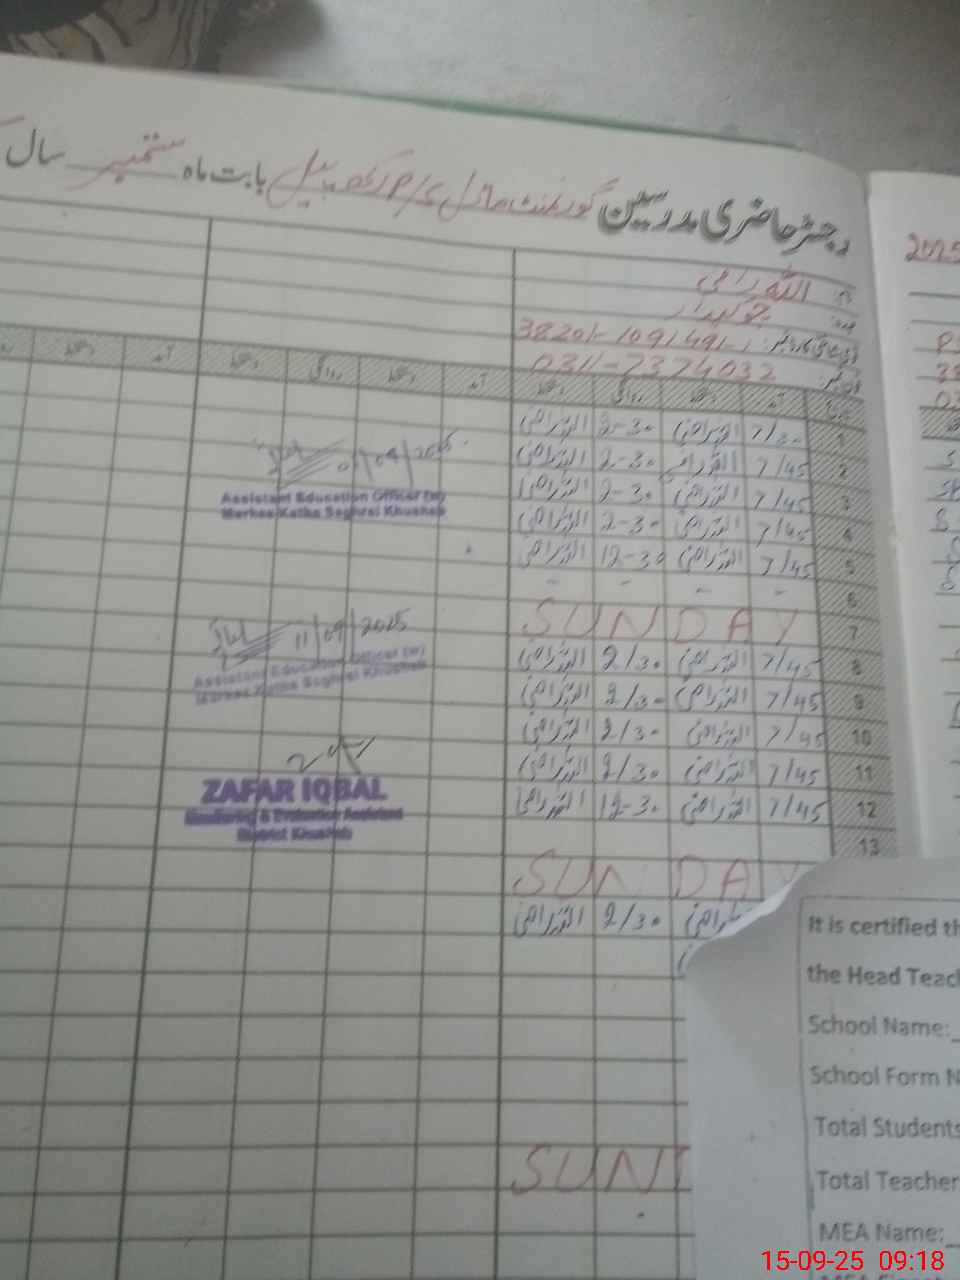 رجسٹر حاضری مدرسین گورنمنٹ ماڈل P/S بابت ماہ ستمبر سال
2025
نام: اللہ راضی
عہدہ: چوکیدار
شناختی کارڈ نمبر: 38201-1091491-1
فون نمبر: 0311-7374032
تاریخ آمد دستخط روانگی دستخط آمد دستخط روانگی دستخط آمد دستخط
1 7/30 اللہ راضی 2-30 اللہ راضی
2 7/45 اللہ راضی 2-30 اللہ راضی
3 7/45 اللہ راضی 2-30 اللہ راضی
4 7/45 اللہ راضی 2-30 اللہ راضی
5 7/45 اللہ راضی 12-30 اللہ راضی
6 - - - -
7 SUNDAY
8 7/45 اللہ راضی 2/30 اللہ راضی
9 7/45 اللہ راضی 2/30 اللہ راضی
10 7/45 اللہ راضی 2/30 اللہ راضی
11 7/45 اللہ راضی 2/30 اللہ راضی
12 7/45 اللہ راضی 12-30 اللہ راضی
13
SUNDAY
اللہ راضی 2/30 اللہ راضی
SUN
01/09/2025
Assistant Education Officer (w)
Markaz Katha Saghral Khushab
11/09/2025
Assistant Education Officer (w)
Markaz Katha Saghral Khushab
ZAFAR IQBAL
Monitoring & Evaluation Assistant
District Khushab
It is certified th
the Head Teac
School Name:_
School Form N
Total Students
Total Teacher
MEA Name:_
15-09-25 09:18